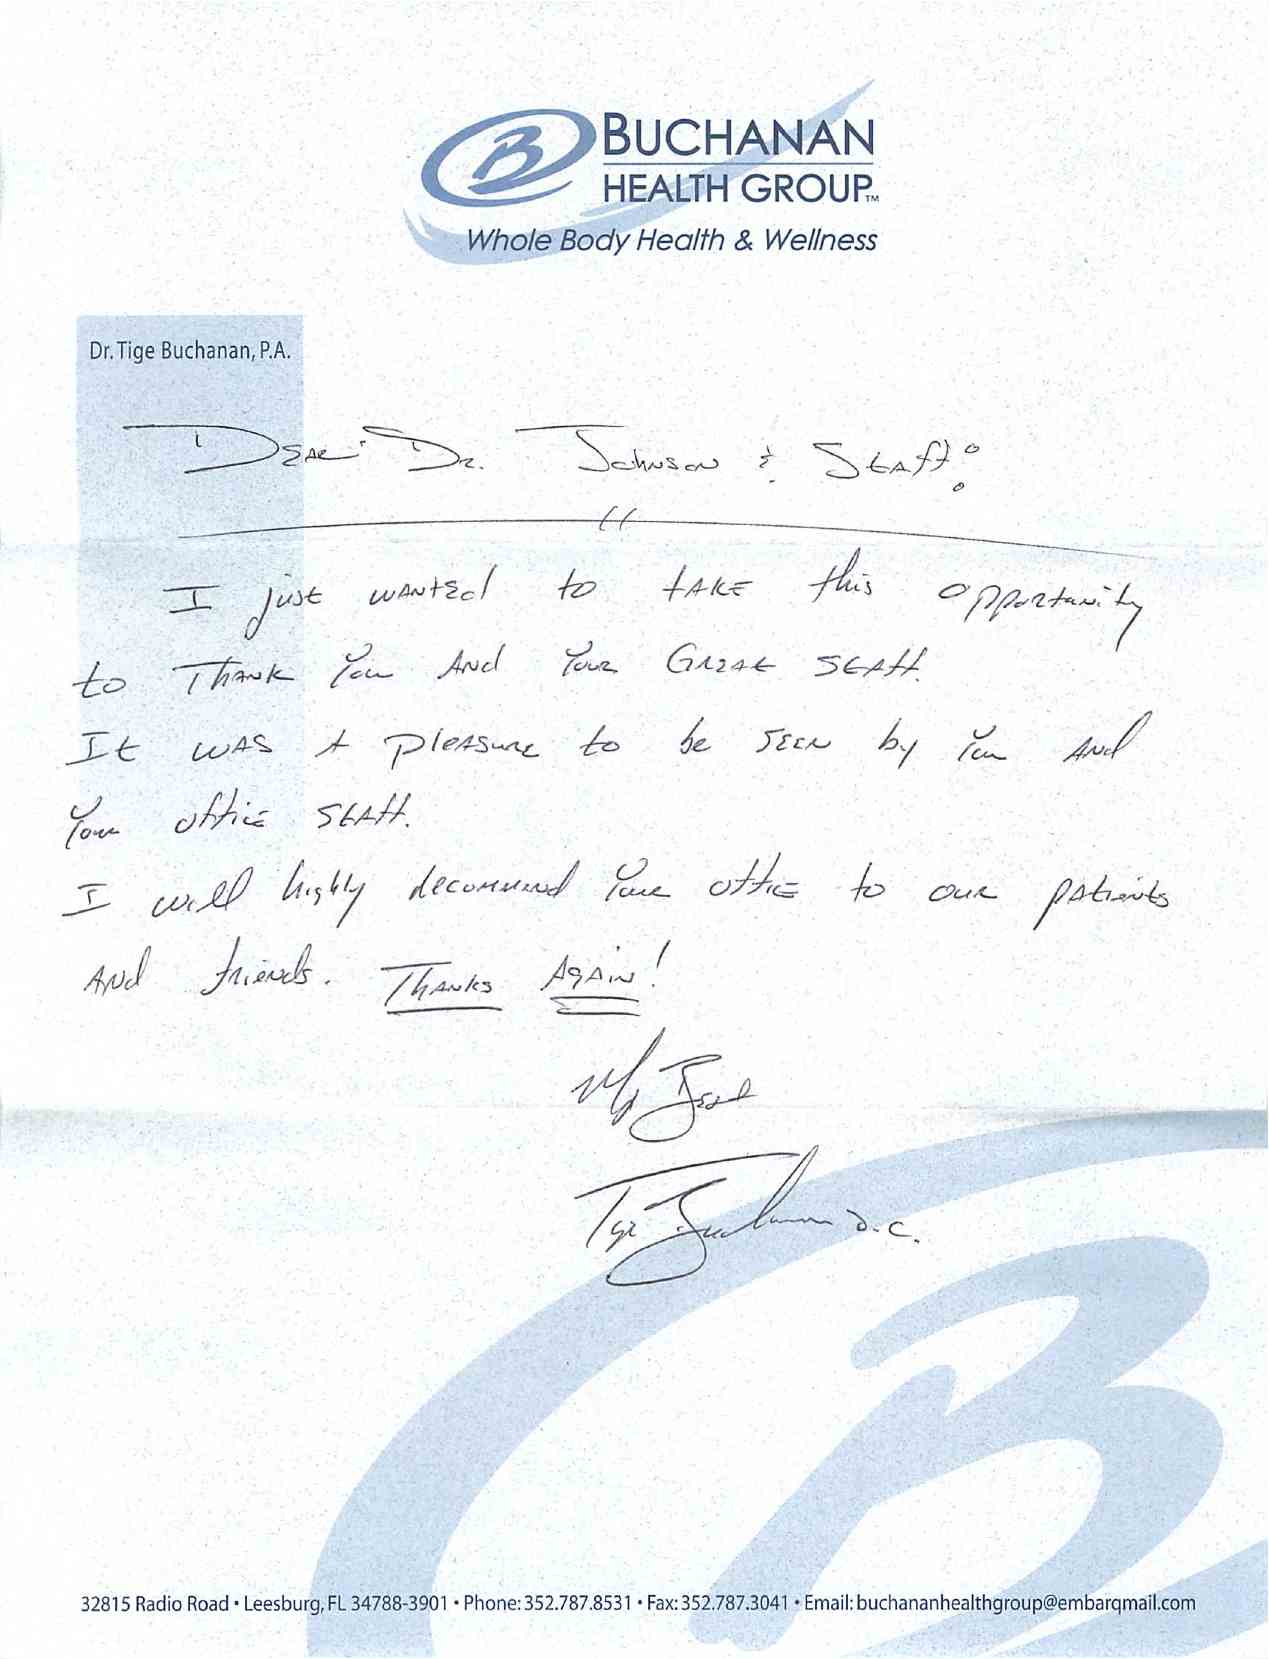 BUCHANAN
HEALTH GROUP™
Whole Body Health & Wellness
Dr. Tige Buchanan, P.A.
Dear Dr. Johnson & Staff:
I just wanted to take this opportunity
to Thank You And Your Great Staff.
It was A pleasure to be seen by You And
Your office Staff.
I will highly recommend Your office to our patients
And friends. Thanks Again!
My Best
Tige Buchanan D.C.
32815 Radio Road • Leesburg, FL 34788-3901 • Phone: 352.787.8531 • Fax: 352.787.3041 • Email: buchananhealthgroup@embarqmail.com